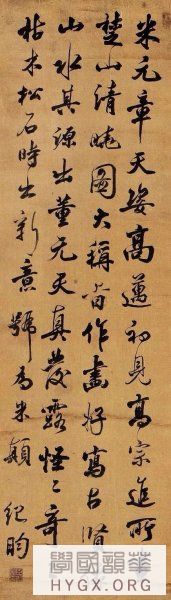 米元章天姿高邁初見高宗進所
楚山清曉圖大稱旨作畫好寫古賢
山水其源出董元天真發露怪々奇
枯木松石時出新意號為米顛 紀昀
學國韻華
HYGX.ORG